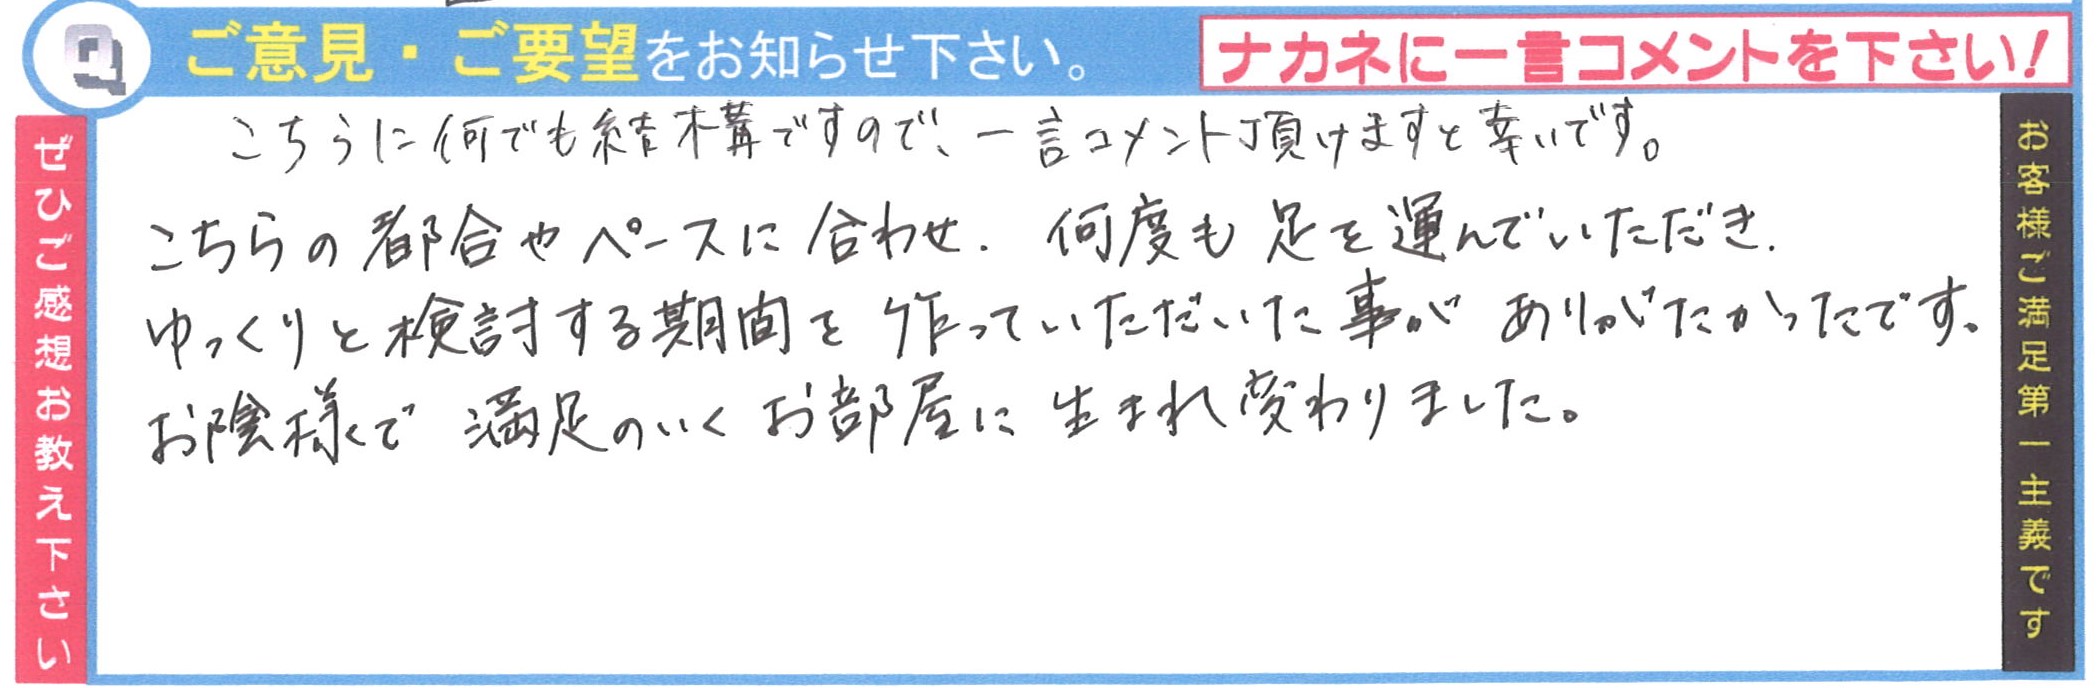 Q ご意見・ご要望をお知らせ下さい。 ナカネに一言コメントを下さい!
こちらに何でも結構ですので、一言コメント頂けますと幸いです。
こちらの都合やペースに合わせ. 何度も足を運んでいただき.
ゆっくりと検討する期間を作っていただいた事がありがたかったです。
お陰様で満足のいくお部屋に生まれ変わりました。
ぜひご感想お教え下さい
お客様ご満足第一主義です